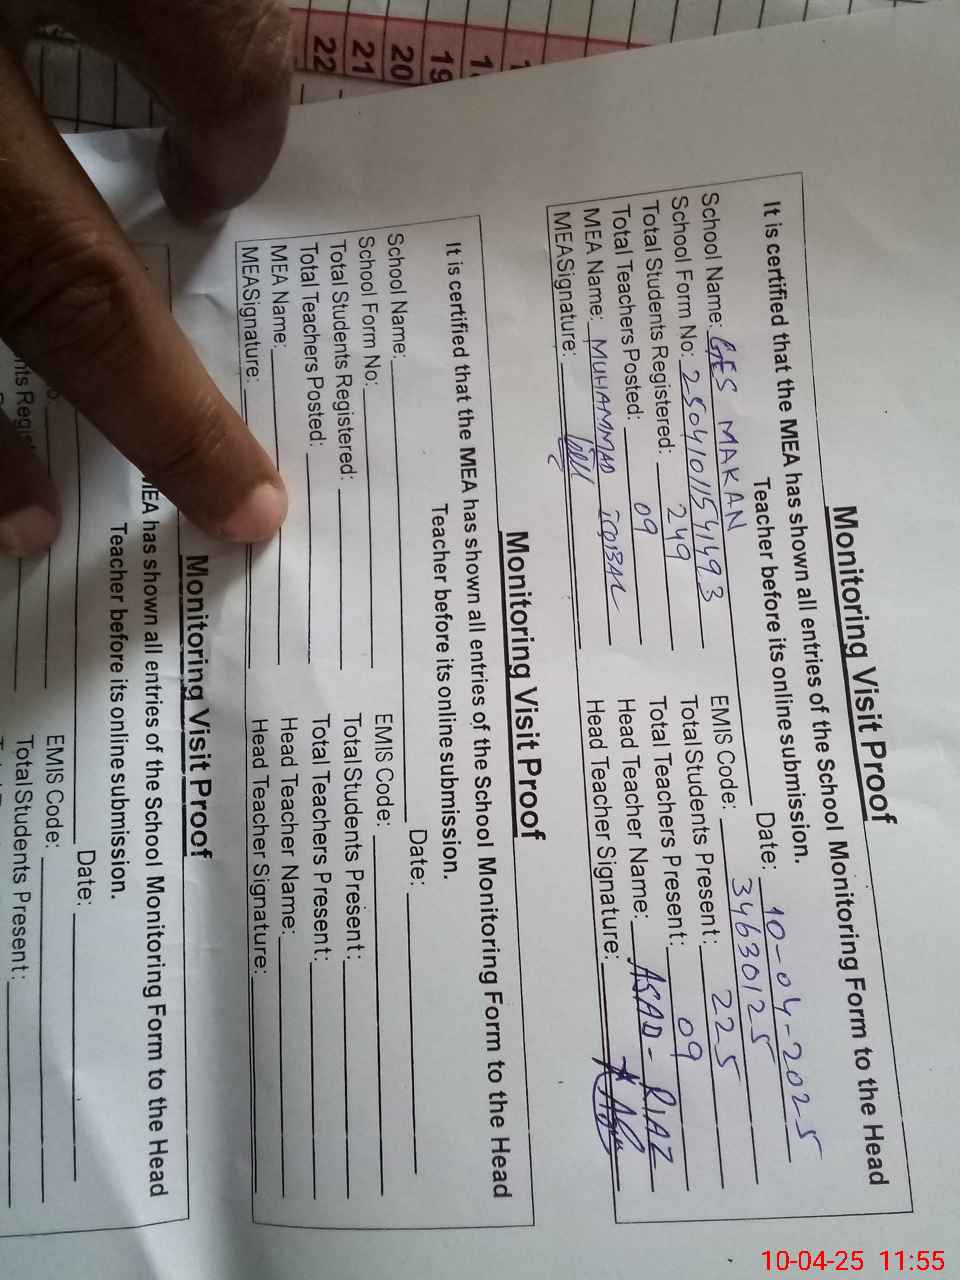 Monitoring Visit Proof
It is certified that the MEA has shown all entries of the School Monitoring Form to the Head
Teacher before its online submission.
School Name: GES MAKAN Date: 10-04-2025
School Form No: 25041011541493 EMIS Code: 34630125
Total Students Registered: 249 Total Students Present: 225
Total Teachers Posted: 09 Total Teachers Present: 09
MEA Name: MUHAMMAD iQBAL Head Teacher Name: ASAD - RIAZ
MEASignature: Head Teacher Signature:
Monitoring Visit Proof
It is certified that the MEA has shown all entries of the School Monitoring Form to the Head
Teacher before its online submission.
School Name: Date:
School Form No: EMIS Code:
Total Students Registered: Total Students Present:
Total Teachers Posted: Total Teachers Present:
MEA Name: Head Teacher Name:
MEASignature: Head Teacher Signature:
Monitoring Visit Proof
MEA has shown all entries of the School Monitoring Form to the Head
Teacher before its online submission.
Date:
EMIS Code:
Total Students Present:
22 21 20 19
10-04-25 11:55